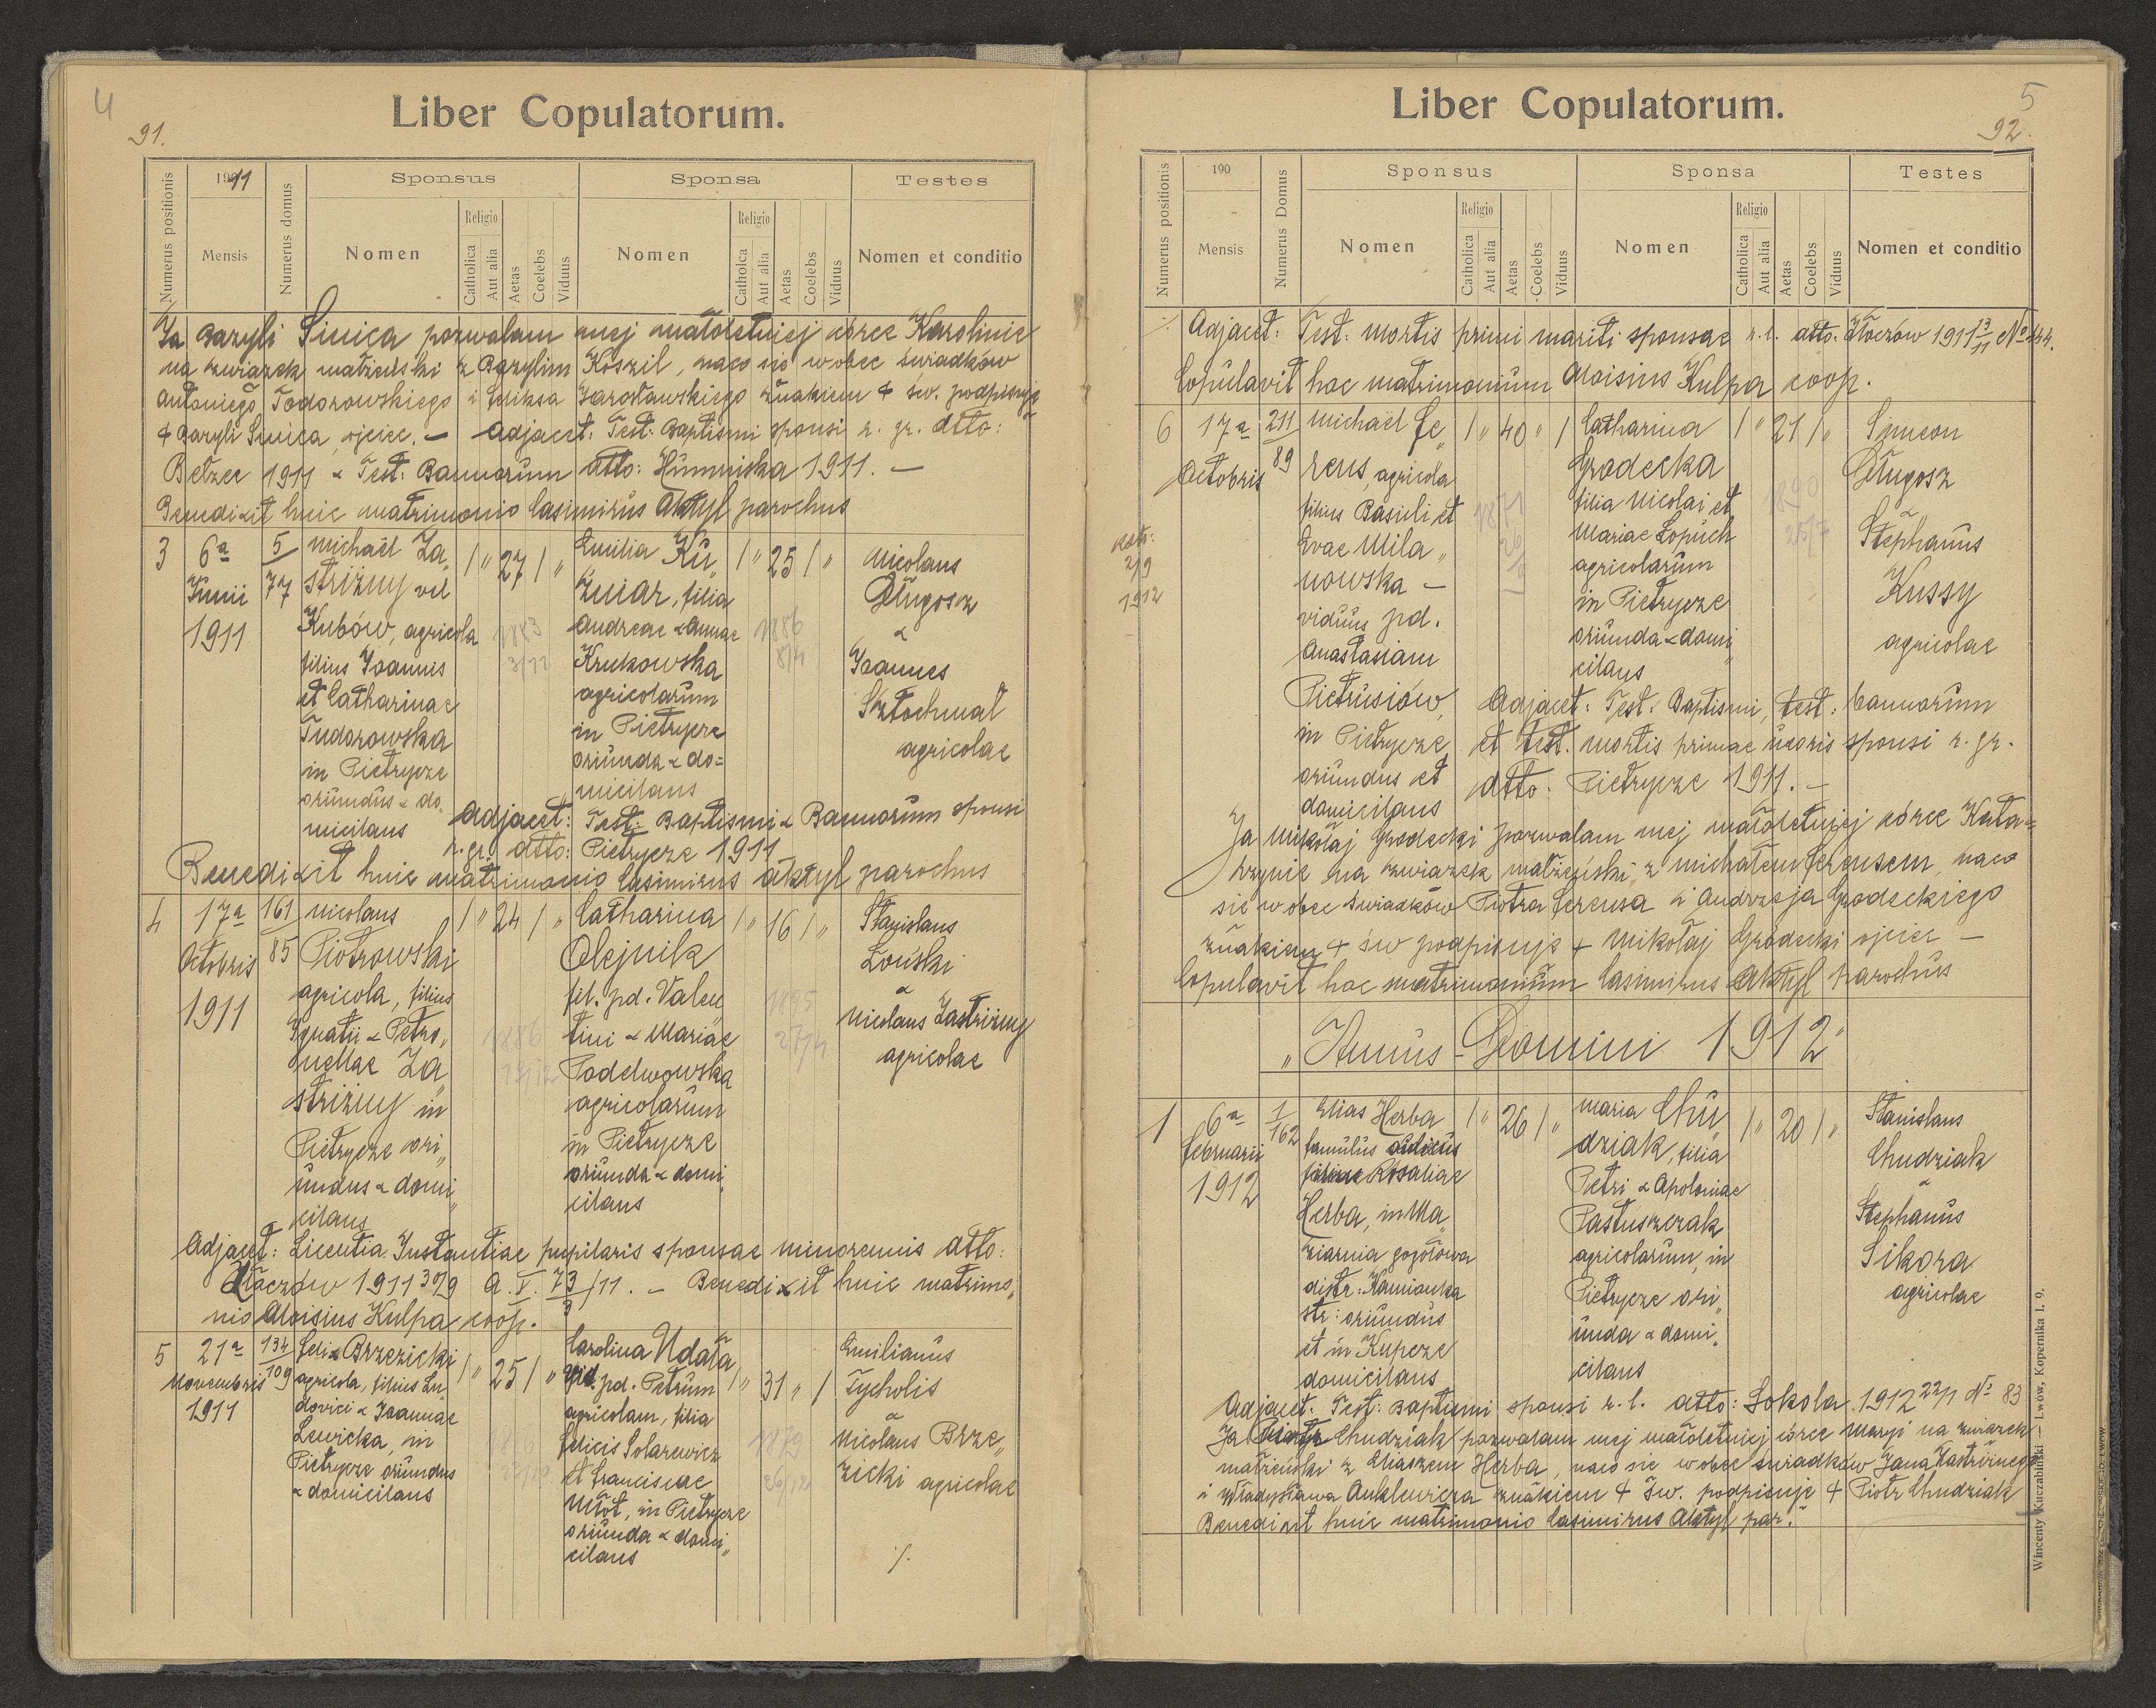 4
91.
Liber Copulatorum.
Numerus positionis
1911
Mensis
Numerus domus
Sponsus
Nomen
Religio
Catholica
Aut alia
Aetas
Coelebs
Viduus
Sponsa
Nomen
Religio
Catholca
Aut alia
Aetas
Coelebs
Viduus
Testes
Nomen et conditio
Ja Bazyli Sinica pozwalam mej małoletniej córce Karolinie
na związek małżeński z Bazylim Koszil, naco się wobec świadków
Antoniego Todorowskiego i Feliksa Jarosławskiego znakiem + św. podpisuję
+ Bazyli Sinica, ojciec. — Adjacet: Test: Baptismi sponsi r. gr. dtto:
Betzec 1911 & Test: Bannorum dtto: Humniska 1911. —
Benedixit huic matrimonio Casimirus Aktyl parochus
3
6a
Junii
1911
5
77
Michaël Za„
striżny vel
Kubów, agricola
filius Joannis
et Catharinae
Tudorowska
in Pietrycze
oriundus & do„
micilans
/ „ 27 / „
1883
3/12
Emilia Ku„
żniar, filia
Andreae & Annae
Krukowska
agricolarum
in Pietrycze
oriunda & do=
micilans
/ „ 25 / „
1886
8/4
Nicolaus
Długosz
&
Joannes
Sztochmal
agricolae
Adjacet: Test: Baptismi & Bannorum sponsi
r. gr. dtto: Pietrycze 1911
Benedixit huic matrimonio Casimirus Aktyl parochus
4
17a
Octobris
1911
161
85
Nicolaus
Piotrowski
agricola, filius
Ignatii & Petro„
nellae Za„
striżny in
Pietrycze ori„
undus & domi„
cilans
/ „ 24 / „
1886
Catharina
Olejnik
fil. pd. Valen„
tini & Mariae
Podelwowska
agricolarum
in Pietrycze
oriunda & domi„
cilans
/ „ 16 / „
1895
27/4
Stanislaus
Łoński
&
Nicolaus Zastriżny
agricolae
Adjacet: Licentia Instantiae pupilaris sponsae minorennis dtto:
Złoczów 1911 30/9 A. V. 73/3 /11. — Benedixit huic matrimo„
nio Aloisius Kulpa coop.
5
21a
Novembris
1911
134
109
Felix Brzezicki
agricola, filius Lu„
dovici & Joannae
Lewicka, in
Pietrycze oriundus
& domicilans
/ „ 25 / „
Carolina Udała
vid. pd. Petrum
agricolam, filia
Felicis Solarewicz
et Franciscae
Młot, in Pietrycze
oriunda & domi„
cilans
/ „ 31 „ /
1879
26/12
Emilianus
Tycholis
&
Nicolaus Brze„
zicki agricolae
./.
5
92.
Liber Copulatorum.
Numerus positionis
190
Mensis
Numerus Domus
Sponsus
Nomen
Religio
Catholica
Aut alia
Aetas
Coelebs
Viduus
Sponsa
Nomen
Religio
Catholica
Aut alia
Aetas
Coelebs
Viduus
Testes
Nomen et conditio
./.
Adjacet: Test: mortis primi mariti sponsae r. l. dtto. Złoczów 1911 13/11 No 444.
Copulavit hoc matrimonium Aloisius Kulpa coop.
6
17a
Octobris
211
89
Michaël Fe„
rens, agricola
filius Basuli et
Evae Mila„
nowska —
viduus pd.
Anastasiam
Pietrusiów,
in Pietrycze
oriundus et
domicilans
/ „ 40 „ /
1871
2/9
1912
Catharina
Grodecka
filia Nicolai et
Mariae Łopuch
agricolarum
in Pietrycze
oriunda & domi„
cilans
/ „ 21 / „
1890
25/7
Simeon
Długosz
&
Stephanus
Kussy
agricolae
Adjacet: Test: Baptismi, test: bannorum
et test. mortis primae uxoris sponsi r. gr.
dtto: Pietrycze 1911. —
Ja Mikołaj Grodecki pozwalam mej małoletniej córce Kata=
rzynie na związek małżeński z Michałem Ferensem, naco
się wobec świadków Piotra Ferensa i Andrzeja Grodeckiego
znakiem + św podpisuję + Mikołaj Grodecki ojciec —
Copulavit hoc matrimonium Casimirus Aktyl parochus
„Annus-Domini 1912"
1
6a
Februarii
1912
1
162
Elias Herba
famulus
Rosaliae
Herba, in Ma„
ziarnia gogołowa
distr: Kamionka
str: oriundus
et in Kupcze
domicilans
/ „ 26 / „
Maria Chu„
dziak, filia
Petri & Apoloniae
Pastuszczak
agricolarum, in
Pietrycze ori„
unda & domi„
cilans
/ „ 20 / „
Stanislaus
Chudziak
&
Stephanus
Sikora
agricolae
Adjacet: Test: Baptismi sponsi r. l. dtto: Sokola 1912 22/1 No 83
Ja Piotr Chudziak pozwalam mej małoletniej córce Maryi na związek
małżeński z Eliaszem Herba, naco się wobec świadków Jana Zastriżnego
i Władysława Anklewicza znakiem + św. podpisuję + Piotr Chudziak
Benedixit huic matrimonio Casimirus Aktyl par.
Wincenty Kuczabiński — Lwów, Kopernika l. 9.